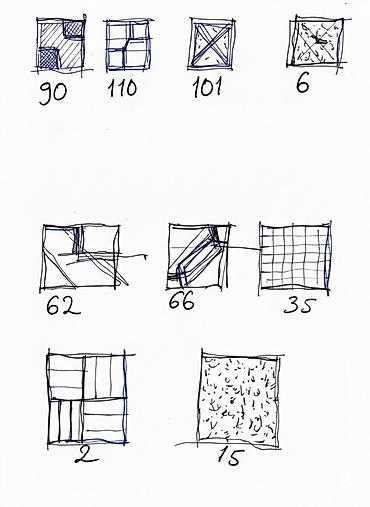 90 110 101 6
62 66 35
2 15